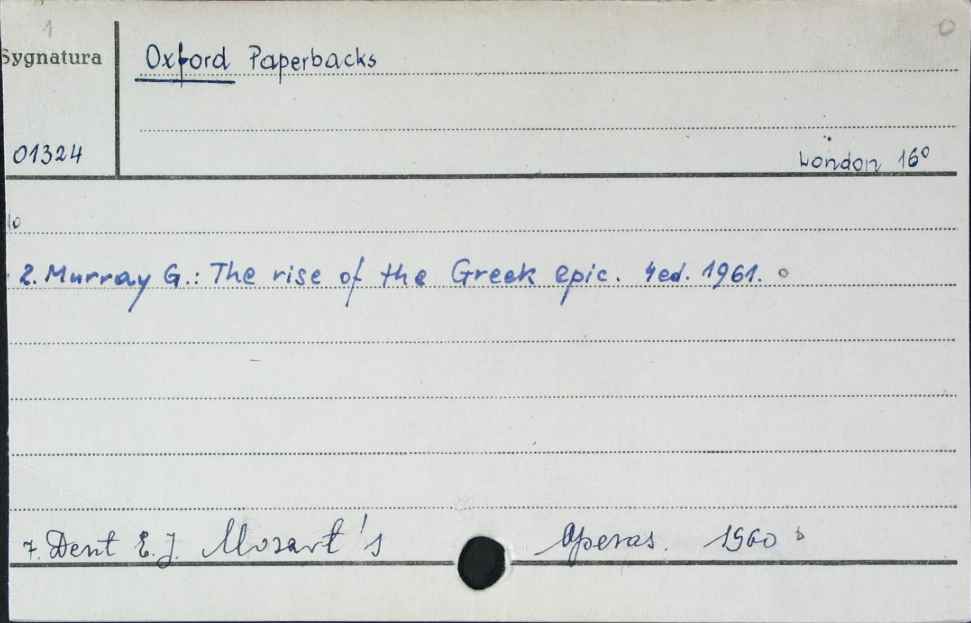 1
Sygnatura
Oxford Paperbacks
01324
London 16°
No
2. Murray G.: The rise of the Greek epic. 4ed. 1961. o
7. Dent E.J. Mozart's Operas. 1960